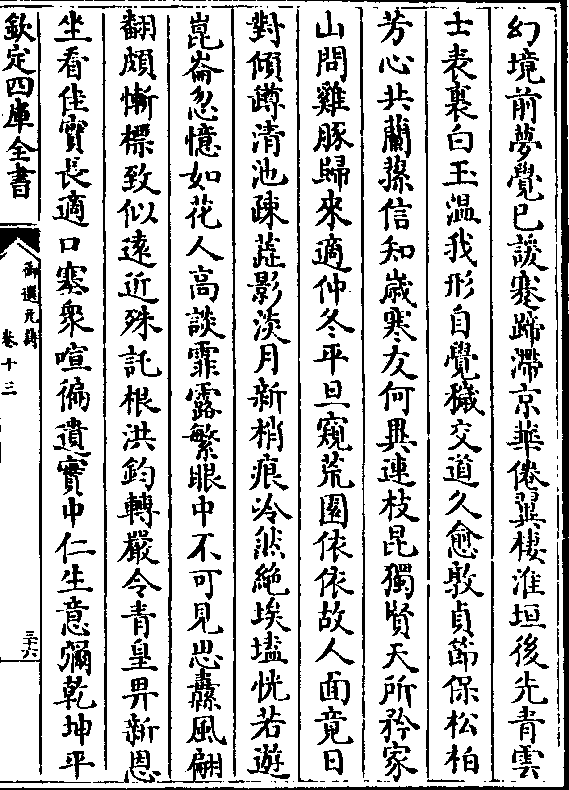 幻境前夢覺已諼寒蹄滯京華倦翼棲淮垣後先青雲
士表裏白玉溫我形自覺穢交道久愈敦貞節保松柏
芳心共蘭蓀信知歲寒友何異連枝昆獨賢天所矜家
山問雞豚歸來適仲冬平旦窺荒園依依故人面竟日
對傾罇清池疎蘂影淡月新梢痕冷然絶埃壒恍若遊
崑崙忽憶如花人高談霏露繁眼中不可見思驀風翩
翻頗慚標致似遠近殊託根洪鈞轉嚴令青皇畀新恩
坐看佳實長適口塞衆喧徧遺實中仁生意彌乾坤平
欽定四庫全書
御選元詩
卷十三
三十六